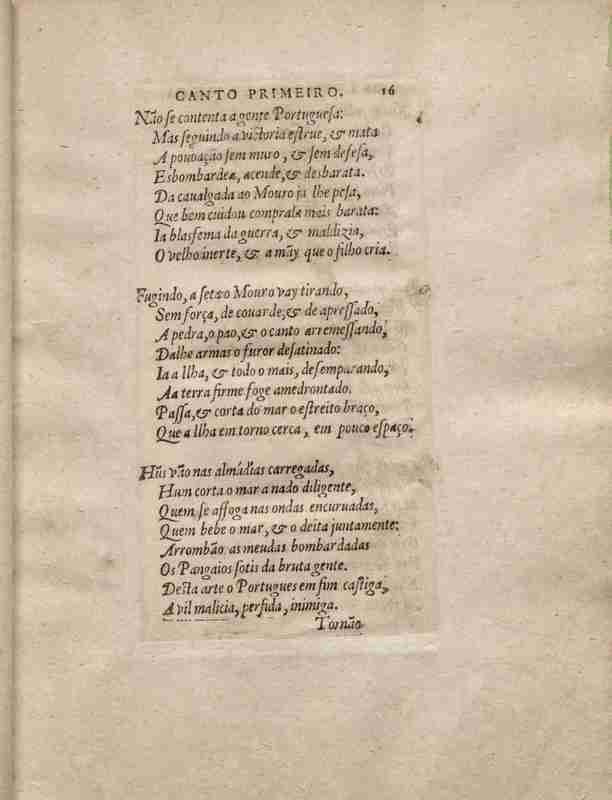 CANTO PRIMEIRO. 16
Não se contenta a gente Portuguesa:
Mas seguindo a victoria estrue, & mata
A pouoação sem muro, & sem defesa,
Esbombardea, acende, & desbarata.
Da caualgada ao Mouro ja lhe pesa,
Que bem cuidou comprala mais barata:
Ia blasfema da guerra, & maldizia,
O velho inerte, & a mãy que o filho cria.
Fugindo, a seta o Mouro vay tirando,
Sem força, de couarde, & de apressado,
A pedra, o pao, & o canto arremessando,
Dalhe armas o furor desatinado:
Ia a Ilha, & todo o mais, desemparando,
Aa terra firme foge amedrontado.
Passa, & corta do mar o estreito braço,
Que a Ilha em torno cerca, em pouco espaço.
Hũs vão nas almádias carregadas,
Hum corta o mar a nado diligente,
Quem se affoga nas ondas encuruadas,
Quem bebe o mar, & o deita juntamente:
Arrombão as meudas bombardadas
Os Pangaios sotis da bruta gente.
Desta arte o Portugues em fim castiga,
A vil malicia, perfida, inimiga.
Tornão